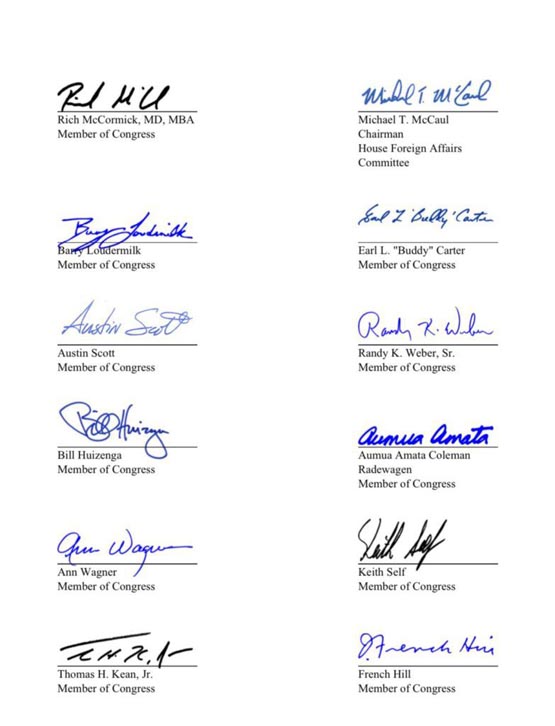 Rich McCormick, MD, MBA
Member of Congress
Michael T. McCaul
Michael T. McCaul
Chairman
House Foreign Affairs
Committee
Barry Loudermilk
Barry Loudermilk
Member of Congress
Earl L "Buddy" Carter
Earl L. "Buddy" Carter
Member of Congress
Austin Scott
Austin Scott
Member of Congress
Randy K. Weber
Randy K. Weber, Sr.
Member of Congress
Bill Huizenga
Bill Huizenga
Member of Congress
Aumua Amata
Aumua Amata Coleman
Radewagen
Member of Congress
Ann Wagner
Ann Wagner
Member of Congress
Keith Self
Keith Self
Member of Congress
Thomas H. Kean, Jr.
Member of Congress
French Hill
French Hill
Member of Congress